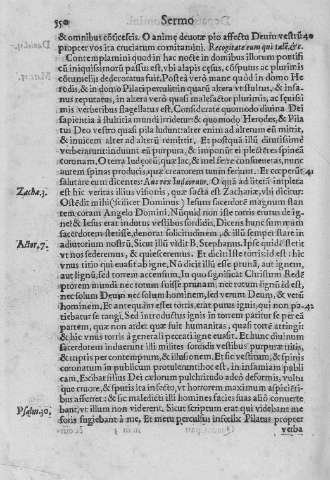 550 Sermo
& omnibus cōficeris. O animę deuotæ pio affectu Deum vestrū 40
propter vos ita cruciatum comitamini. Recogitate eum qui talē, &c.
Contemplamini quod in hac nocte in domibus illorum pontifi
cū iniquissimorū passus est, vbi alapis cęsus, cōsputus ac plurimis
cōtumeliis dedecoratus fuit. Postea verò mane quòd in domo He
rodis, & in domo Pilati per militum
nus reputatus, in altera verò quasi malefactor plurimis, acquissi
mis verberibus flagellatus est. Considerate quomodo diuina Dei
sapientia à stultitia mundi irridetur: & quomodo Herodes, & Pila
tus Deo vestro quasi pila ludunt: alter enim ad alterum eū mittit,
& inuicem alter ad alterū remittit. Et postquā illū diutissimè
verberarunt: induunt eū purpura, & imponūt ei plectētes spineā
coronam. O terra Iudęorū, quæ lac, & mel ferre consueueras, nunc
autem spinas producis, quæ creatorem tuum pungerent. Et cœperūt 41
salutare eum dicentes: Aue rex Iudæorum. O quā ad literā impleta
Zachæ. 3. est hic veritas illius visionis, quæ facta est Zachariæ, vbi dicitur:
Ostēdit mihi (scilicet Dominus) Iesum sacerdotē magnum stan
tem coram Angelo Domini. Nūquid non iste torris erutus de ig
ne? & Iesus erat indutus vestibus sordidis. Dicens hunc summum
sacerdotem stetisse, denotat solicitudinem, & illū semper stare in
Actor. 7. adiutorium nostrū. Sicut illū vidit B. Stephanus. Ipse quidē stetit
vt nos sederemus, & quiesceremus. Et dicit: Iste torris id est: hic
vnus titio qui euasit ab igne, Nō dicit illū esse prunā, aut ignem,
aut lignū, sed torrem accensum. In quo significat Christum Redē
ptorem mundi nec totum fuisse prunam, nec totum lignū id est,
nec solum Deum nec solum hominem, sed verum Deum, & verū
hominem. Et antequā in igne esset torris, erat purus ignis, qui non po- 42
tiebatur se tangi. Sed introductus ignis in torrem patitur se per eā
partem, quæ non ardet quæ fuit humanitas, quasi torrē attingit
& hic vnus torris à generali peccati igne euasit. Et hunc diuinum
sacerdotem induerunt illi milites sordidis vestibus purpuræ tritis,
& turpis per contemptum, & illusionem. Et sic vestitum, & spinis
coronatum in publicum protulerunt: hoc est, in infamiam publi
cam. Exibat illius Dei cælorum pulchritudo adeò deformis, vultu
que cruore, & sputis ita infecto, vt horrorem maximum aspicienti
bus afferret: & sic maledicti illi homines facies suas aliò conuerte
Psalm. 30. bant, vt illum non viderent. Sicut scriptum erat qui videbant me
foris fugiebant à me. Et metu perculsus infœlix Pilatus propter
verba